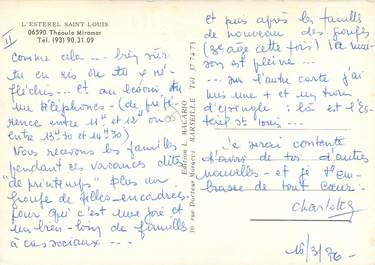 L'ESTEREL SAINT LOUIS
06590 Théoule Miramar
Tél. (93) 90.31.09
II
comme cela ... bien sûr
tu en ris ou tu y ré-
fléchis... et au besoin tu
me téléphones (de préfé-
rence entre 11H et 12H ou
entre 13H30 et 14H30)
Nous recevons les familles
pendant ces vacances dites
"de printemps" plus un
groupe de filles encadrées
pour qui c'est une joie et
un bien - loin de familles
à cas sociaux ---
Edition L. MACARIO
10 rue Docteur Morucci MARSEILLE Tél 37 74 73
et puis après les familles
de nouveau des groupes
(3e âge cette fois) la mai-
son est pleine ...
... sur l'autre carte j'ai
mis une + et un trou
d'épingle : là est l'Es-
terel St Louis ...
Je serai contente
d'avoir de toi d'autres
nouvelles - et je t'em-
brasse de tout cœur.
Charlotte
16/3/76-